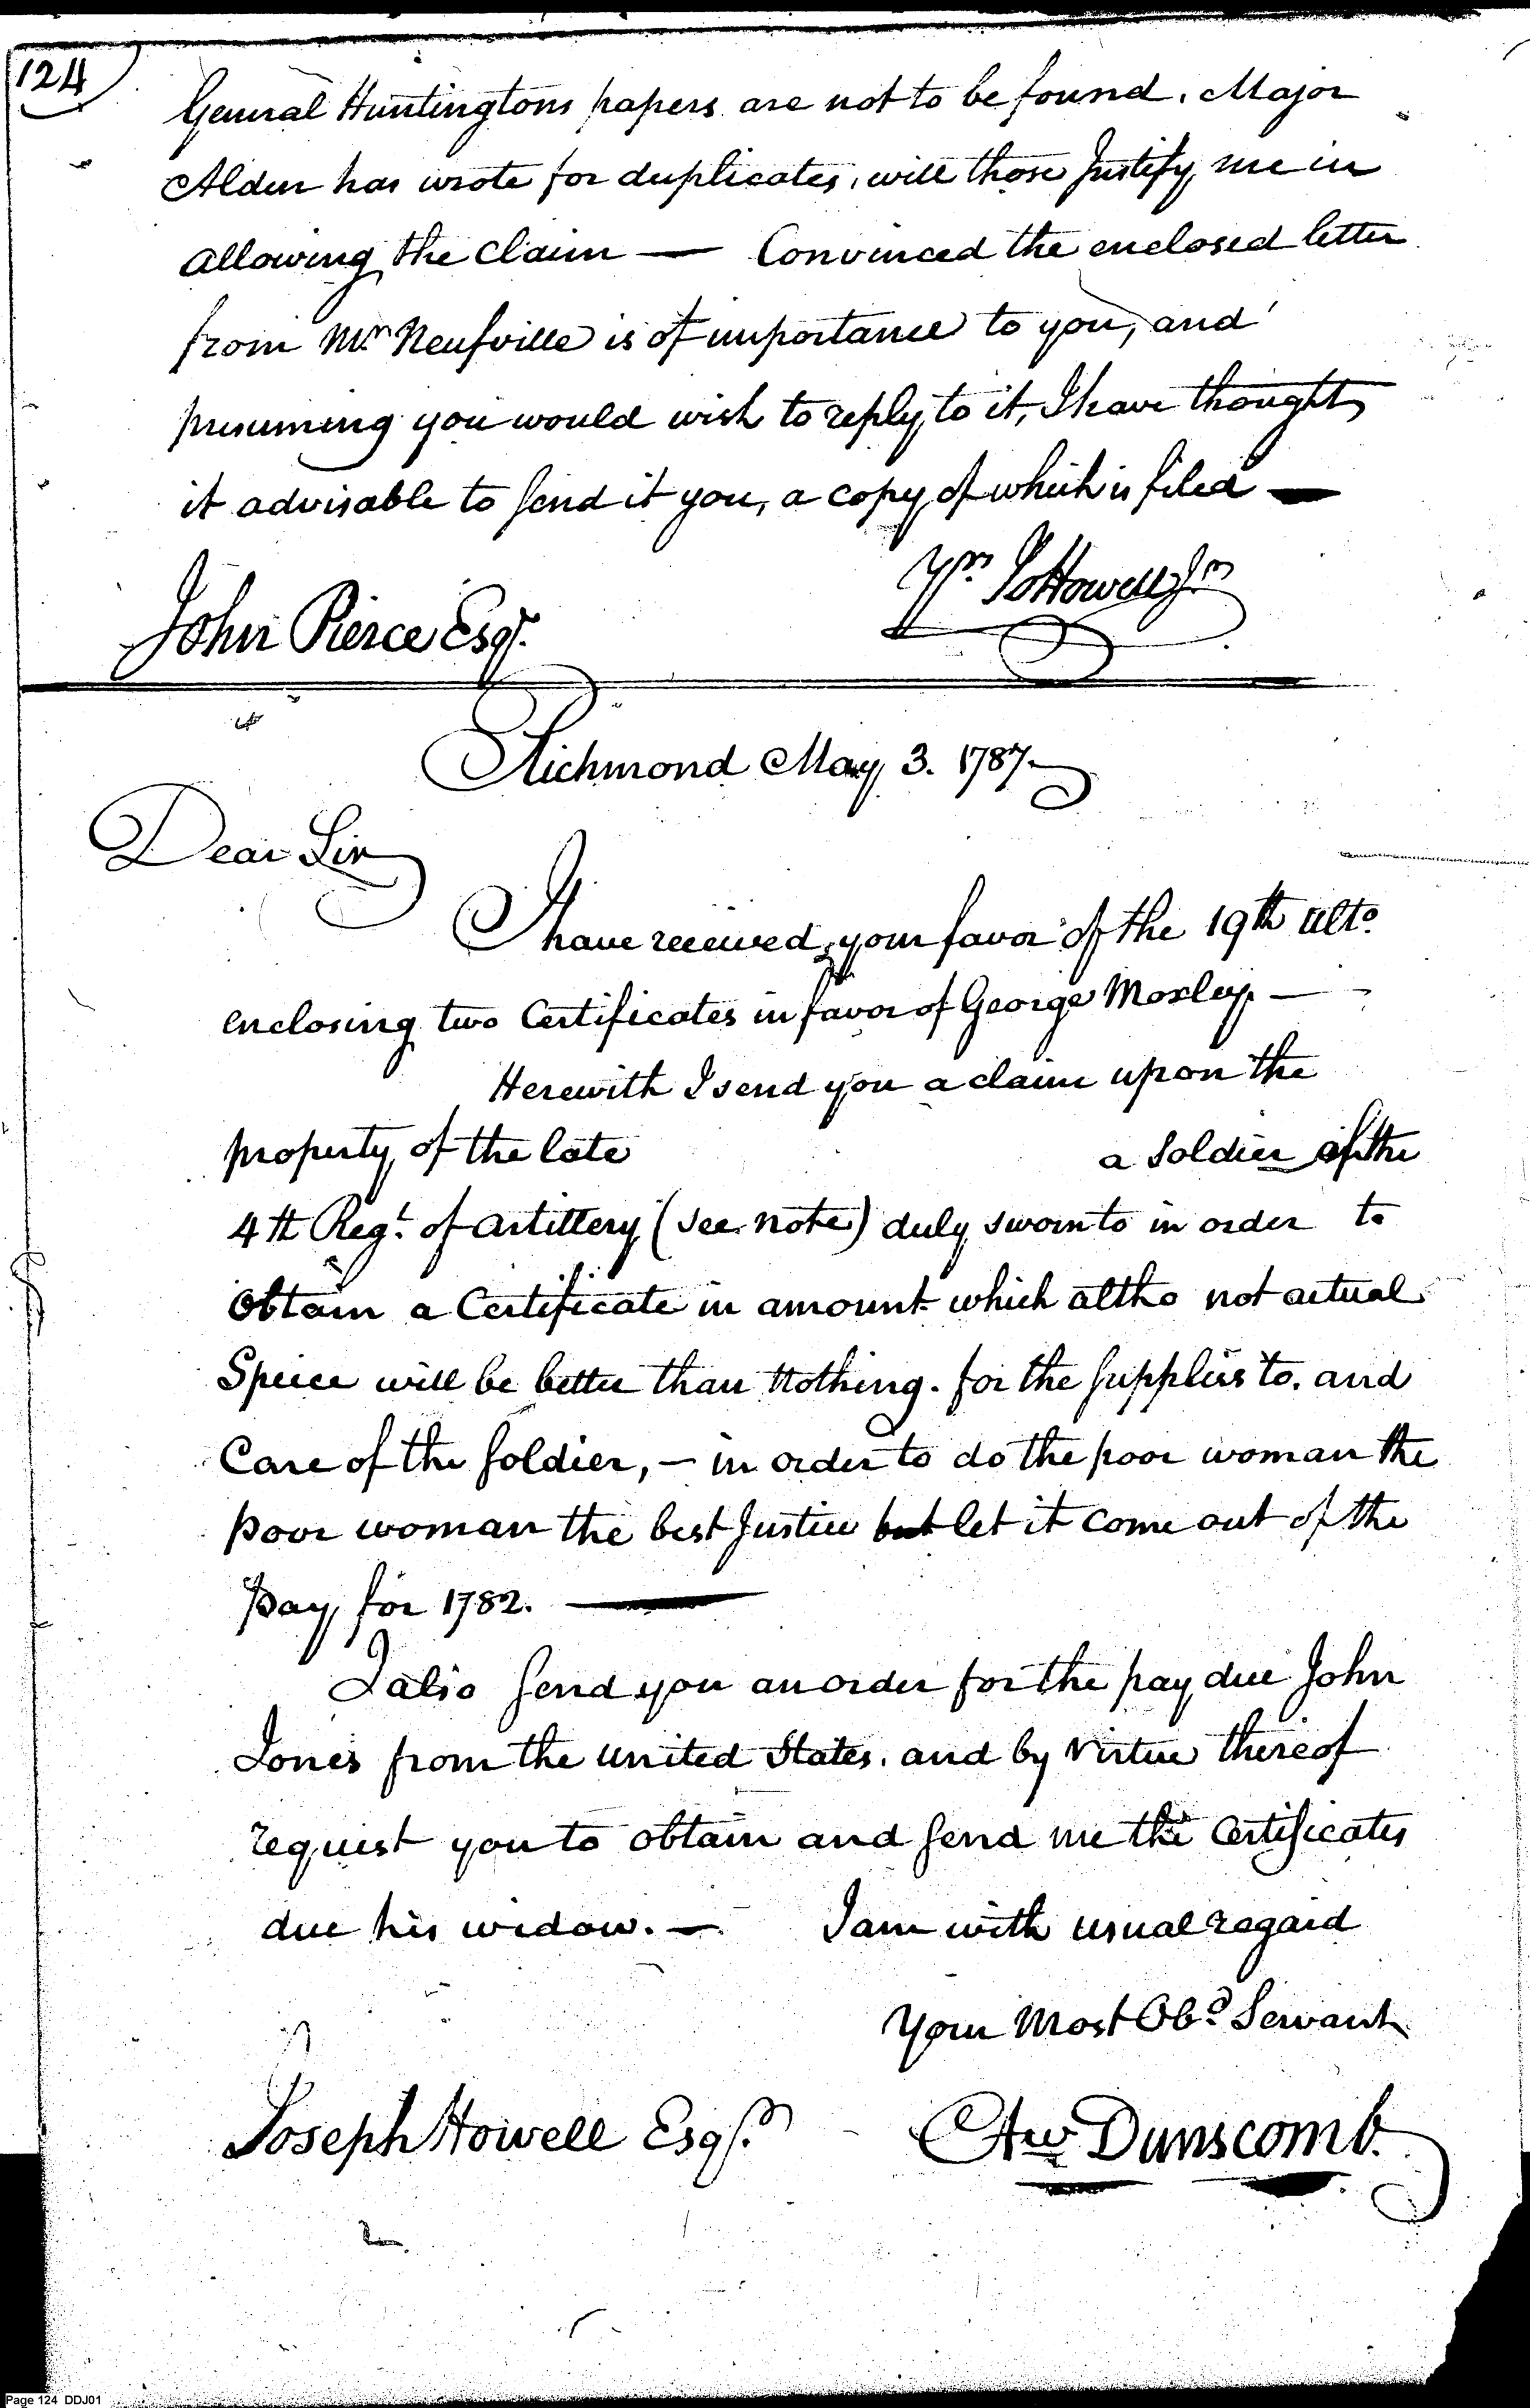 124
General Huntingtons papers are not to be found. Major
Alden has wrote for duplicates, will those Justify me in
allowing the Claim — Convinced the enclosed letter
from Mr. Neufville is of importance to you, and
presuming you would wish to reply to it, I have thought
it advisable to send it you, a copy of which is filed —
Yrs Jos Howell Jr
John Pierce Esqr.
Richmond May 3. 1787.
Dear Sir
I have received your favor of the 19th ulto.
enclosing two Certificates in favor of George Moxley. —
Herewith I send you a claim upon the
property of the late a Soldier of the
4th Regt. of Artillery (see note) duly sworn to in order to
Obtain a Certificate in amount which altho not actual
Specie will be better than Nothing. for the supplies to. and
Care of the soldier, — in order to do the poor woman the
poor woman the best Justice but let it come out of the
Pay for 1782. —
I also send you an order for the pay due John
Jones from the United States. and by Virtue thereof
request you to obtain and send me the Certificates
due his widow. — I am with usual regard
Your Most Obd. Servant
Joseph Howell Esqr. Aw Dunscomb.
Page 124 DDJ01